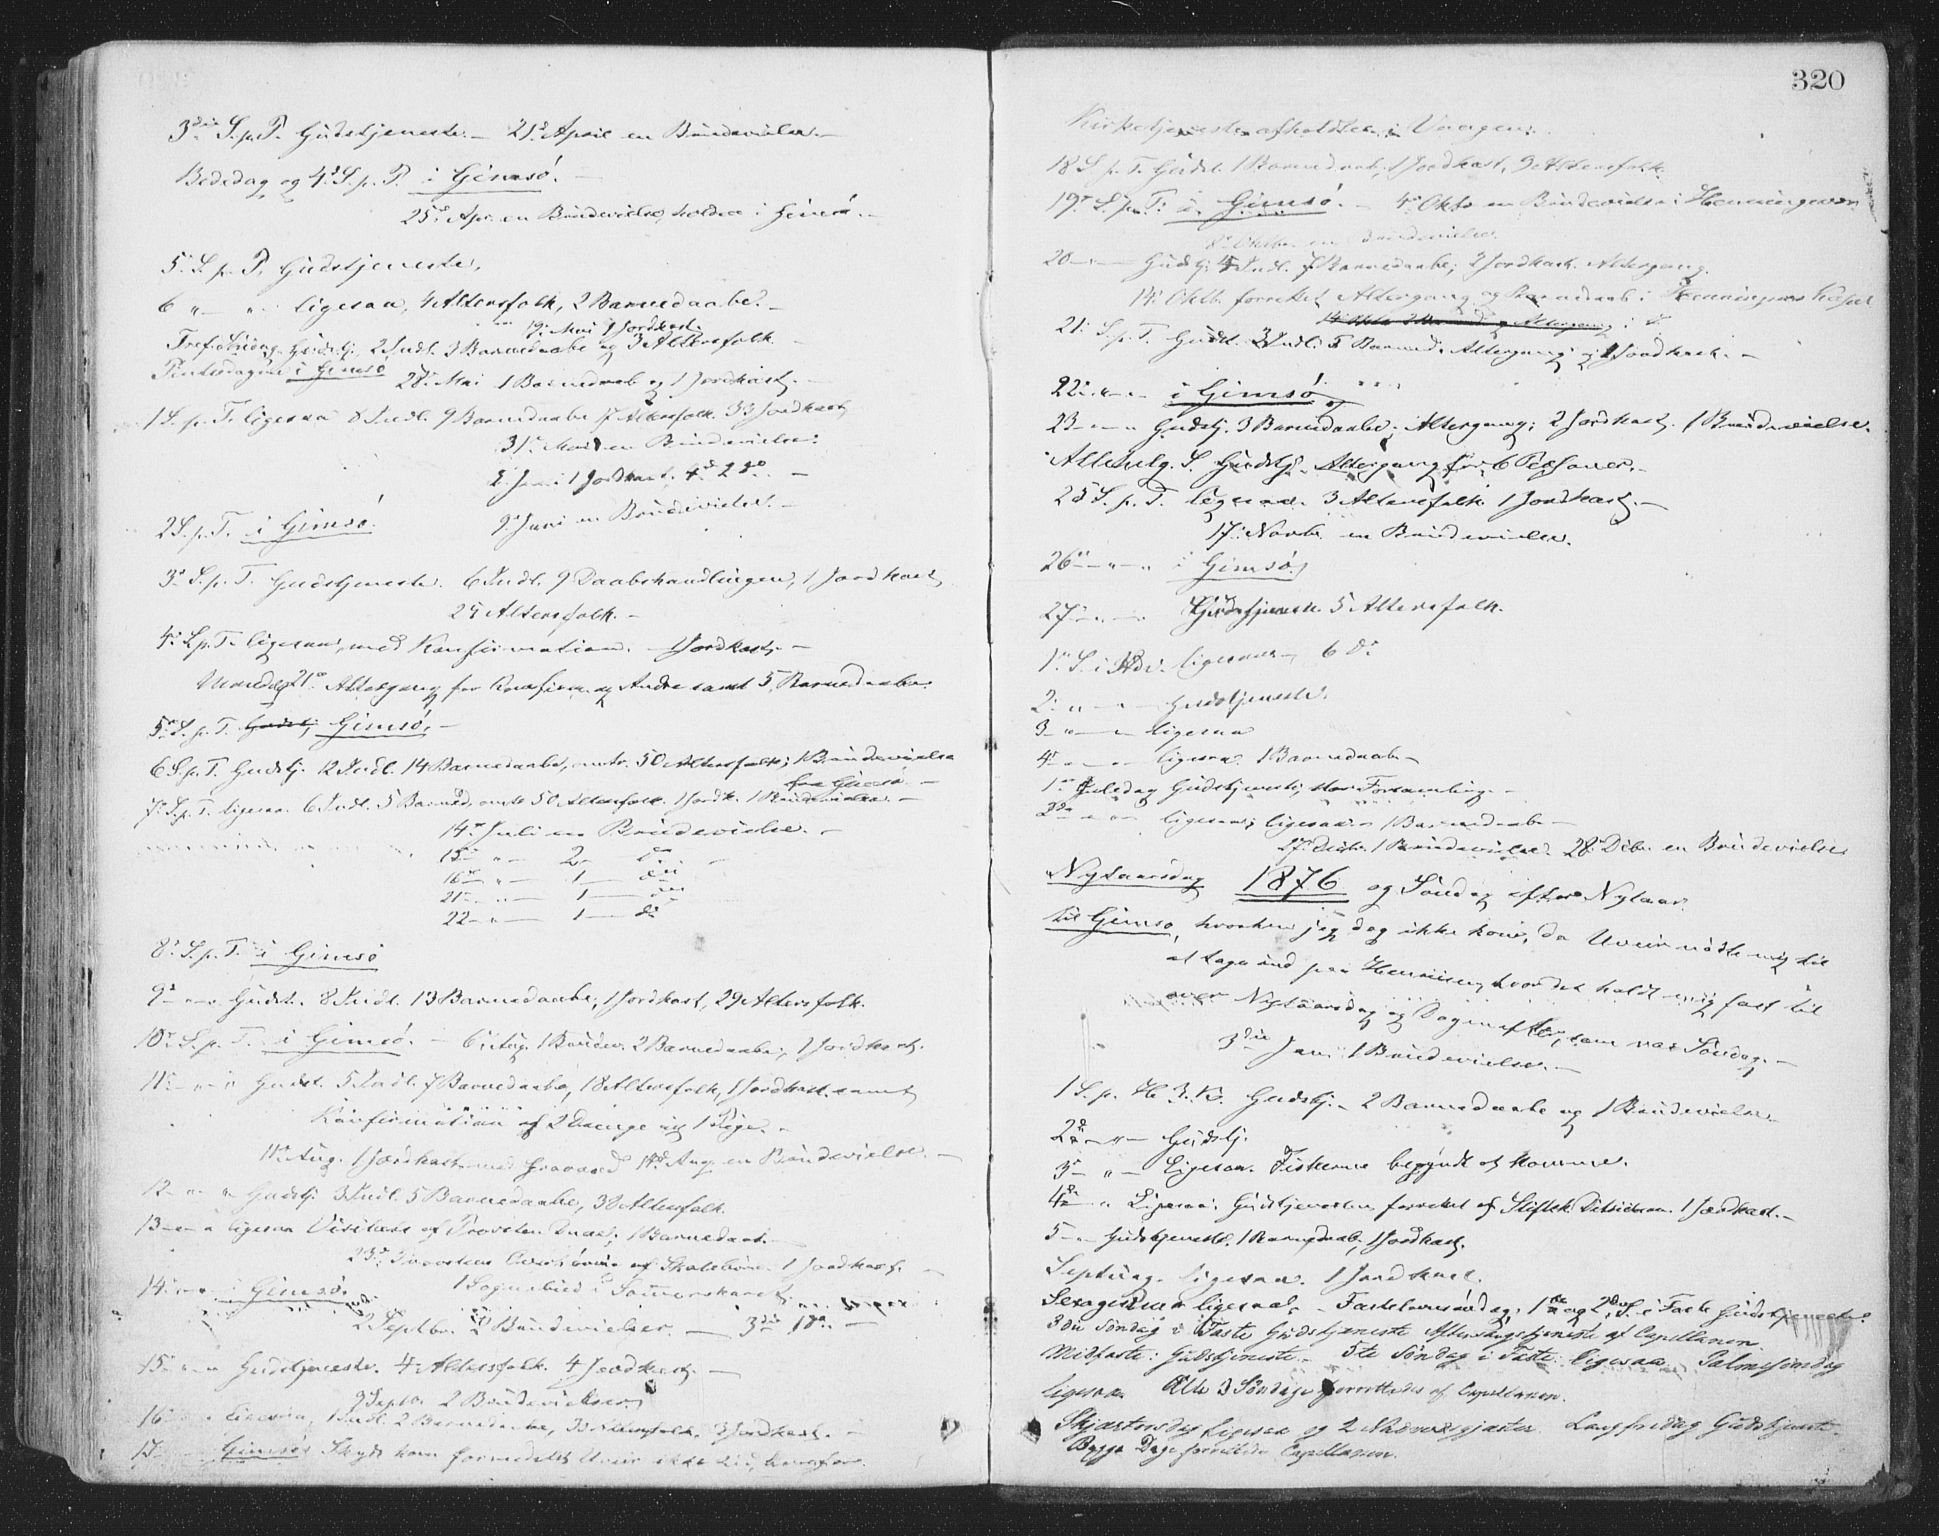 3die S.p.T. Gudstjeneste. – 21d April en Brudevielse. –
Bededag og 4d S. p. P. i Gimsø. –
25d Apr. en Brudevielse holden i Gimsø. –
5. S. p. P. Gudstjeneste.
6 " – " ligesaa, 4 Altersfolk, 2 Barnedaabe. –
19. Mai 1 Jordkast.
Gudstj. 2 Indl. 3 Barnedaabe og 3 Altersfolk. –
Pintsedagene i Gimsø 28. Mai 1 Barnedaab og 1 Jordkast. –
1 S. p. T. ligesaa 8 Indl. 9 Barnedaabe 17 Altersfolk. 33 Jordkast
31. Mai en Brudevielse.
2. Juni 1 Jordkast. 4d 2 do. –
2 S. p. T. i Gimsø. 9. Juni en Brudevielse. –
3. S. p. T. Gudstjeneste. 6 Indl. 9 Daabshandlinger, 1 Jordkast
24 Altersfolk. –
4. S.p.T. ligesaa, med Konfirmation. 1 Jordkast. –
Mandag 21. Altergang for Konfirm. og Andre samt 5 Barnedaabe.
5. S. p. T. Gudstj. Gimsø. –
6 S.p.T. Gudstj. 12 Indl. 14 Barnedaabe, omtr. 50 Altersfolk; 1 Brudevielse
fra Gimsø. –
7. S.p.T. ligesaa. 6 Indl. 5 Barned. omtr 50 Altersfolk. 1 Jordk. 1 Brudevielse. –
14. Juli en Brudevielse. –
15 – " – 2 – do –
16 – " – 1 – do
21 – " – 1 – do
22 – " – 1 – do
8. S. p. T. i Gimsø
9 – " – Gudst. 8 Indl. 13 Barnedaabe, 1 Jordkast, 29 Altersfolk.
10. S. p. T. i Gimsø. – 6. Aug. 1 Brudev. 2 Barnedaabe, 1 Jordkast.
11 – " – " Gudst. 5 Indl. 7 Barnedaabe, 18 Altersfolk, 1 Jordkast samt
Konfirmation af 2 Drenge og 1 Pige. –
11. Aug. 1 Jordkast med Aug. en Brudevielse. –
12 – " – " Gudstj. 3 Indl. 5 Barnedaabe, 30 Altersfolk.
13 – " – " ligesaa Visitats af Provsten 1 Barnedaab. –
23. Provsten af Skolebørn. 1 Jordkast. –
14. – " – i Gimsø. 1 Sognebud i
2 Septbr. Brudevielser. – 3die 1 do. –
15 – " – " Gudstjeneste. 4 Altersfolk. 4 Jordkast. –
9 Septbr 2 Brudevielser
16 – " – ligesaa, 1 Indl. 2 Barnedaabe, Altersfolk, 3 Jordkast. –
17 – Gimsø. Skyds kom formedelst Uveir ikke
320
Kirketjeneste afholdte i Vaagen.
18 S. p. T. Gudst. 1 Barnedaab, 1 Jordkast, 3 Altersfolk.
19. S. p. T. i Gimsø. – 4. Oktb en Brudevielse i Henningsvær
8. Oktbr. en Brudevielse.
20 – " – Gudstj. 4 Indl. 7 Barnedaabe, 2 Jordkast. Altergang.
14. Oktb. forrettet Altergang og Barnedaab i Henningsvær Kapel
21. S. p. T. Gudst. 3 Indl. 5 Barned. Altergang og 1 Jordkast. –
22 – " – i Gimsø
23 – " – " Gudstj. 3 Barnedaabe, Altergang; 2 Jordkast. 1 Brudevielse.
Allehelg. S. Gudstj. Altergang for 6 Personer. –
25 S. p. T. ligesaa. 3 Altersfolk. 1 Jordkast. –
17. Novbr. en Brudevielse.
26 – " – " i Gimsø.
27 – " – Gudstjeneste. 5 Altersfolk.
1. S. i Adv. ligesaa – 6 do
2. " – " – Gudstjeneste.
3 – " – ligesaa
4 – " – ligesaa. 1 Barnedaab –
1. Juledag Gudstjeneste, stor Forsamling. –
2den – " – ligesaa; ligesaa – 1 Barnedaab –
27. Decbr. 1 Brudevielse. 28. Dcbr. en Brudevielse
Nytaarsdag 1876 og Søndag efter Nytaar.
til Gimsø, hvorhen jeg dog ikke kom, da Uveir nødte mig til
at tage ind paa Henningsv. hvor det holdt mig fast til
over Nytaarsdag og Dagen efter, som var Søndag. –
3die Jan. 1 Brudevielse. –
1 S. p. H. 3. K. Gudstj. – 2 Barnedaabe og 1 Brudevielse.
2d – " – Gudstj.
3. – " – Ligesaa. Fiskerne begyndt at komme.
4de – " Ligesaa. Gudstjenesten forrettet af Stiftsk. 1 Jordkast. –
5 – " Gudstjeneste. 1 Barnedaab, 1 Jordkast.
Septuag. ligesaa. 1 Jordkast.
Sexagesima ligesaa. – Fastelavnssøndag, 1ste og 2den S. i Faste Gudstjeneste.
3die Søndag i Faste Gudstjeneste Aftensangstjeneste af Capellanen.
Midfaste: Gudstjeneste. – 5te Søndag i Faste: ligesaa. Palmesøndag
ligesaa. Alle 3 Søndage forrettedes af Capellanen.
Skjærtorsdag Ligesaa og 2 Nadvergjæster. Langfredag Gudstjeneste.
Begge Dage forrettede Capellanen.